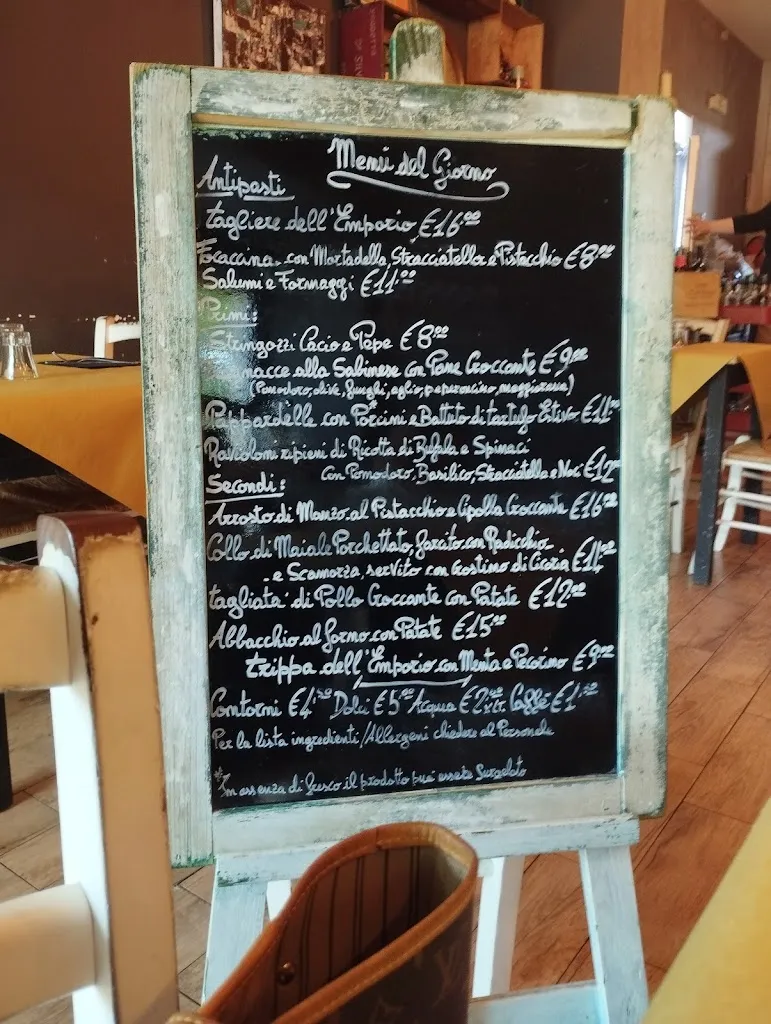 Menù del Giorno
Antipasti
Tagliere dell'Emporio €16,00
Focaccina con Mortadella, Stracciatella e Pistacchio €8,00
Salumi e Formaggi €11,00
Primi:
Stringozzi Cacio e Pepe €8,00
alla Sabinese con Pane Croccante €9,00
(Pomodoro, olive, funghi, aglio, peperoncino, maggiorana)
Pappardelle con Porcini* e Battuto di tartufo Estivo €11,00
Ravioloni ripieni di Ricotta di Bufala e Spinaci
con Pomodoro, Basilico, Stracciatella e Noci €12
Secondi:
Arrosto di Manzo al Pistacchio e Cipolla Croccante €16,00
Collo di Maiale Porchettato, farcito con Radicchio
e Scamorza, servito con Crostino di Cicoria
Tagliata di Pollo Croccante con Patate €12,00
Abbacchio al forno con Patate €15,00
Trippa dell'Emporio con Menta e Pecorino €9,00
Contorni Dolci €5,00 Acqua Caffè
Per la lista ingredienti/Allergeni chiedere al Personale
*In assenza di fresco il prodotto può essere Surgelato